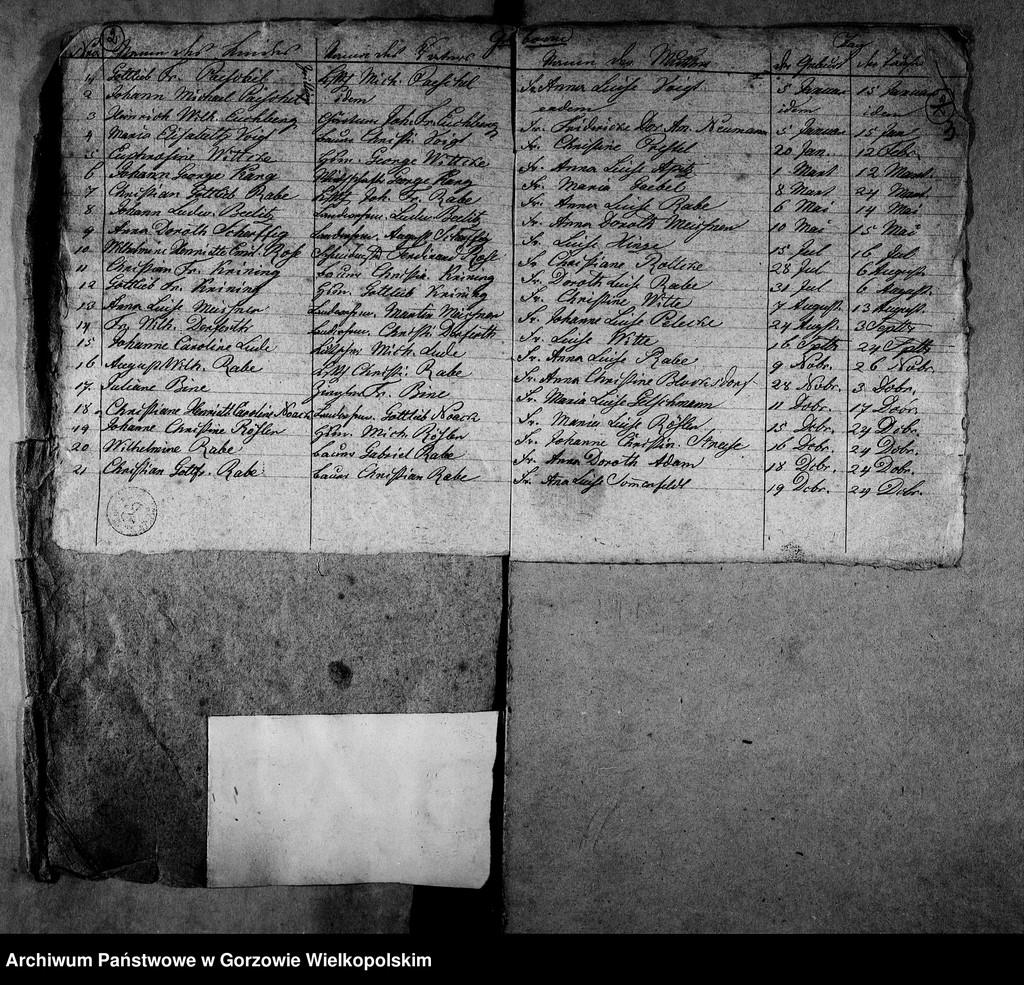 Gebohrne
Tag
Nro Namen des Kindes Namen des Vaters Namen der Mutter der Geburt der Taufe
1 Gottlieb Fr. Paeschel Mich. Paeschel Fr. Anna Luise Voigt 5 Januar 15 Januar
2 Johann Michael Paeschel idem eadem idem idem
3 Heinrich Wilh. Eichberg Joh. Fr. Eichberg Fr. Friedericke Dor. An. Neumann 5 Januar 15 Jan
4 Maria Elisabeth Voigt Bauer Christ. Voigt Fr. Christine 20 Jan. 12 Febr.
5 Euphrosine Wittcke George Wittcke Fr. Anna Luise 1 Mart 12 Mart
6 Johann George Kang George Kang Fr. Maria Jaebel 8 Mart 24 Mart
7 Christian Gottlob Rabe Joh. Fr. Rabe Fr. Anna Luise Rabe 6 Mai 14 Mai
8 Johann Ludw. Beelitz Ludw. Beelitz Fr. Anna Doroth Meissner 10 Mai 15 Mai
9 Anna Doroth Scherffig August Scherffig Fr. Luise Hinze 15 Jul 16 Jul
10 Wilhelmine Henriette Emil. Rose Ferdinand Rose Fr. Christiane 28 Jul 6 August
11 Christian Fr. Krining Bauer Christia. Krining Fr. Doroth Luise Rabe 31 Jul 6 August
12 Gottlob Fr. Krining Gottlieb Krining Fr. Christine Witte 7 August 13 August
13 Anna Luise Meissner Martin Meissner Fr. Johanne Luise Pelecke 24 August 3 Septbr
14 Fr. Wilh. Derforth Christi. Derforth Fr. Luise Witte 16 Septb 24 Septb
15 Johanne Caroline Lude Mich. Lude Fr. Anna Luise Rabe 9 Nobr. 26 Nobr.
16 August Wilh. Rabe Christi. Rabe Fr. Anna Christine 28 Nobr. 3 Dcbr.
17 Juliane Bine Fr. Bine Fr. Maria Luise 11 Dcbr. 17 Dcbr.
18 Christiane Henriette Caroline Noack Gottlieb Noack Fr. Maria Luise Rösler 15 Dcbr. 24 Dcbr.
19 Johanne Christine Rösler Mich. Rösler Fr. Johanne Christin. 16 Dcbr. 24 Dcbr.
20 Wilhelmine Rabe Bauer Gabriel Rabe Fr. Anna Doroth Adam 18 Dcbr. 24 Dcbr.
21 Christian Gottfr. Rabe Bauer Christian Rabe Fr. Ana Luise Somerfeldt 19 Dcbr. 24 Dcbr.
Archiwum Państwowe w Gorzowie Wielkopolskim